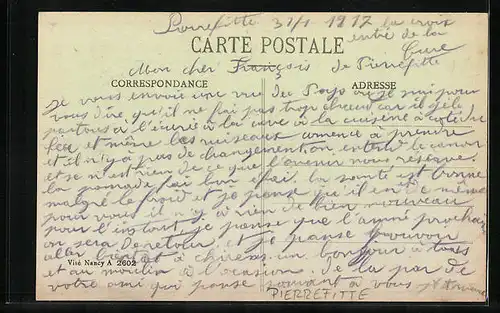 Pierrefitte 31/1 1917 la croix
entré de la
CARTE POSTALE
Cure
Mon cher François de Pierrefitte
CORRESPONDANCE ADRESSE
Je vous envoie une vue du Pays je suis pour
vous dire qu'il ne fai pas trop chaud car il gele
partous a l'écurie a la cave a la cuisine a coté du
feu et même les ruiseaux comence a prendre
et il n'y a pas de changement on entend le canon
et se n'est rien de ce que l'avenir nous réserve.
la pomade fai bon efai, la santé est bonne
malgré le froid et je panse qu'il en de même
pour vous il n'y a rien de bien nouveau
pour l'instant je panse que l'anné prochain
on sera De retour et je panse pouvoir
aller bientot a un bonjour a tous
Visé Nancy A 2602
et au moulin a l'ocasion de la par de
votre ami qui panse souvant a vous
PIERREFITTE